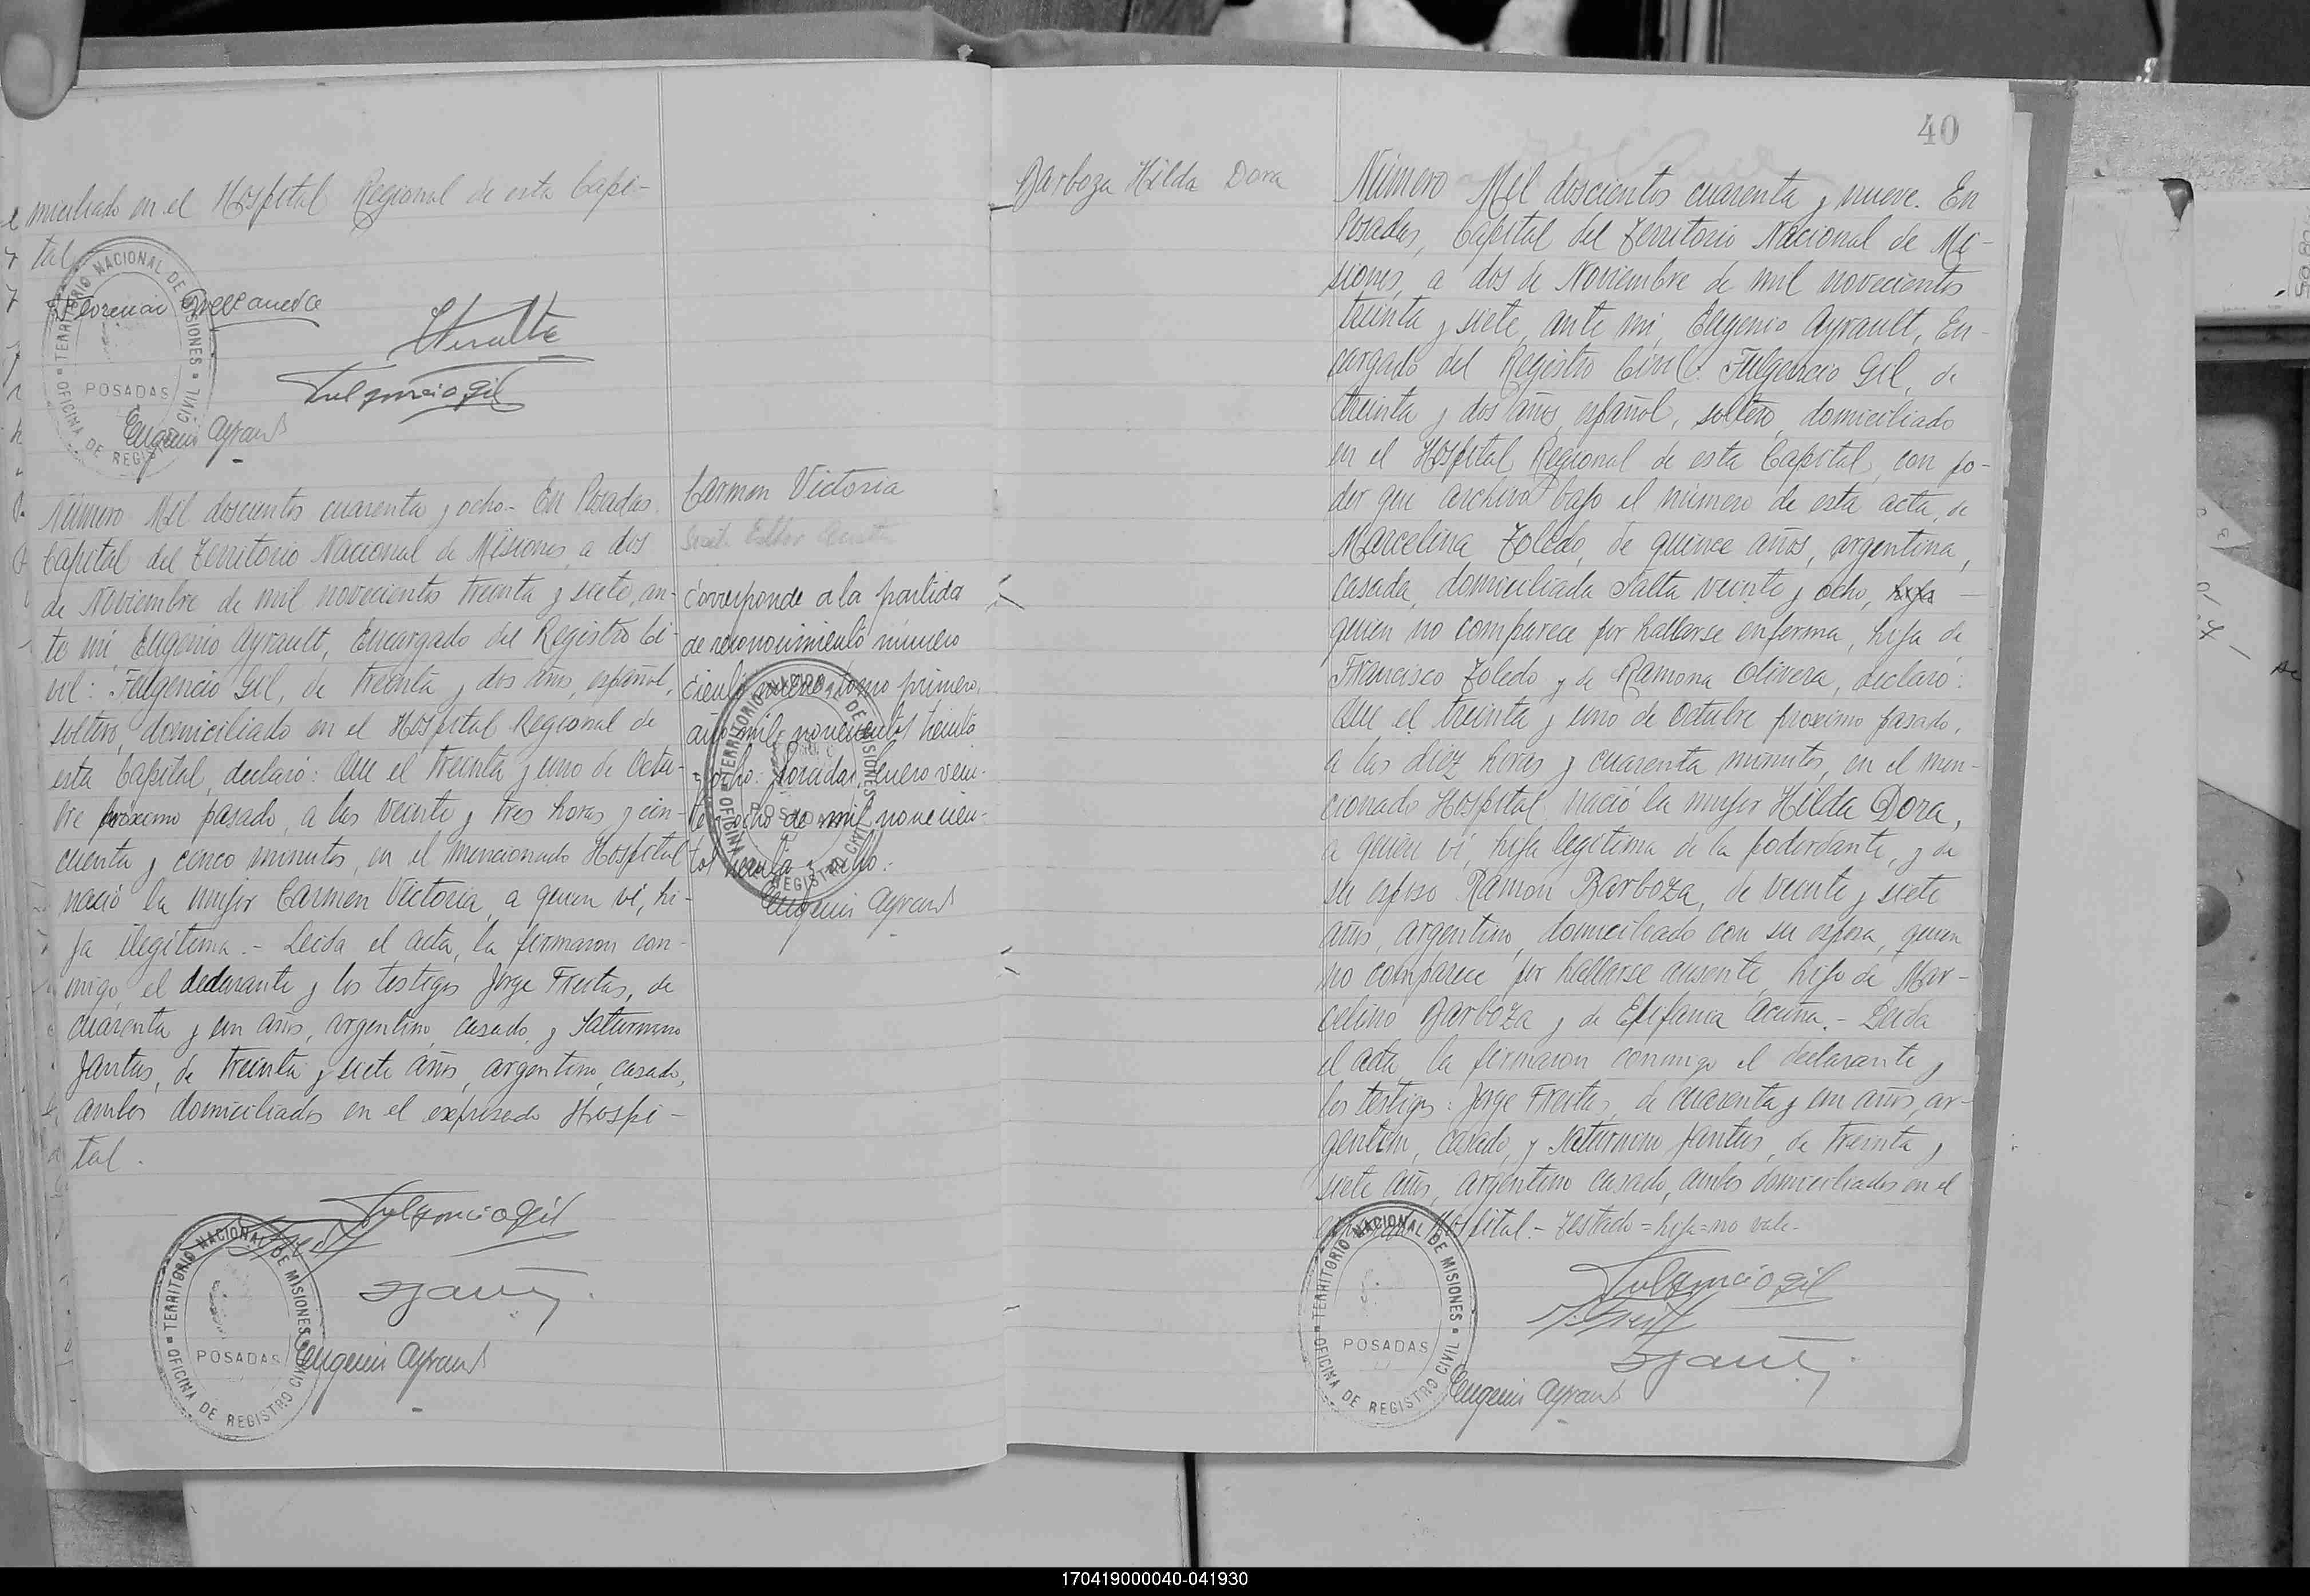 miciliado en el Hospital Regional de esta Capi-
tal
TERRITORIO NACIONAL DE MISIONES
OFICINA DE REGISTRO CIVIL
POSADAS
Fulgencio Gil
Eugenio Ayrault
Número Mil doscientos cuarenta y ocho.- En Posadas
Capital del Territorio Nacional de Misiones, a dos
de Noviembre de mil novecientos treinta y siete, an-
te mí, Eugenio Ayrault, Encargado del Registro Ci-
vil: Fulgencio Gil, de treinta y dos años, español,
soltero, domiciliado en el Hospital Regional de
esta Capital, declaró: Que el treinta y uno de Octu-
bre próximo pasado, a las veinte y tres horas y cin-
cuenta y cinco minutos, en el mencionado Hospital
nació la mujer Carmen Victoria, a quien ví, hi-
ja ilegítima.- Leida el acta, la firmaron con-
migo, el declarante y los testigos Jorge Freitas, de
cuarenta y un años, argentino, casado, y Saturnino
Jantus, de treinta y siete años, argentino, casado,
ambos domiciliados en el expresado Hospi-
tal.
Fulgencio Gil
TERRITORIO NACIONAL DE MISIONES
OFICINA DE REGISTRO CIVIL
POSADAS
Eugenio Ayrault
Carmen Victoria
Corresponde a la partida
de reconocimiento número
ciento tomo primero,
año mil novecientos treinta
y ocho: Posadas, Enero vein-
te y ocho de mil novecien-
tos treinta y ocho:
TERRITORIO NACIONAL DE MISIONES
OFICINA DE REGISTRO CIVIL
POSADAS
Eugenio Ayrault
40
Barboza Hilda Dora
Número Mil doscientos cuarenta y nueve. En
Posadas, Capital del Territorio Nacional de Mi-
siones, a dos de Noviembre de mil novecientos
treinta y siete, ante mí, Eugenio Ayrault, En-
cargado del Registro Civil: Fulgencio Gil, de
treinta y dos años, español, soltero, domiciliado
en el Hospital Regional de esta Capital, con po-
der que archivo bajo el número de esta acta, de
Marcelina Toledo, de quince años, argentina,
casada, domiciliada Salta veinte y ocho, hija
quien no comparece por hallarse enferma, hija de
Francisco Toledo y de Ramona Olivera, declaró:
Que el treinta y uno de Octubre proximo pasado,
a las diez horas y cuarenta minutos, en el men-
cionado Hospital, nació la mujer Hilda Dora,
a quien ví, hija legítima de la poderdante, y de
su esposo Ramon Barboza, de veinte y siete
años, argentino, domiciliado con su esposa, quien
no comparece por hallarse ausente, hijo de Mar-
celino Barboza y de Epifania Acuña.- Leida
el acta, la firmaron conmigo el declarante y
los testigos: Jorge Freitas, de cuarenta y un años, ar-
gentino, casado, y Saturnino Jantus, de treinta y
siete años, argentino casado, ambos domiciliados en el
expresado Hospital.- Testado=hija=no vale.
Fulgencio Gil
TERRITORIO NACIONAL DE MISIONES
OFICINA DE REGISTRO CIVIL
POSADAS
Eugenio Ayrault
170419000040-041930